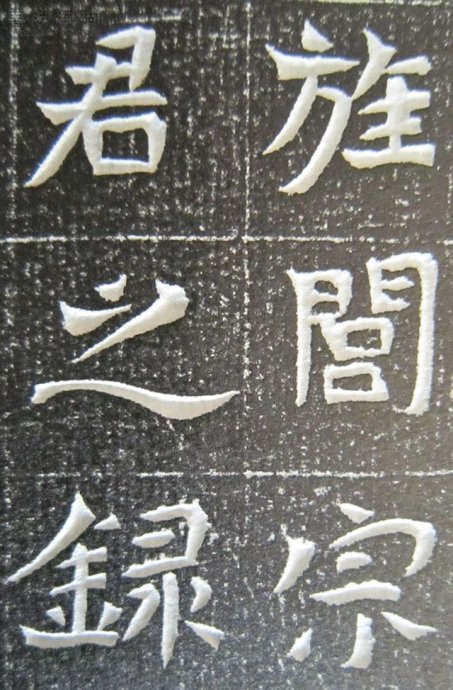 旌閭宗
君之録